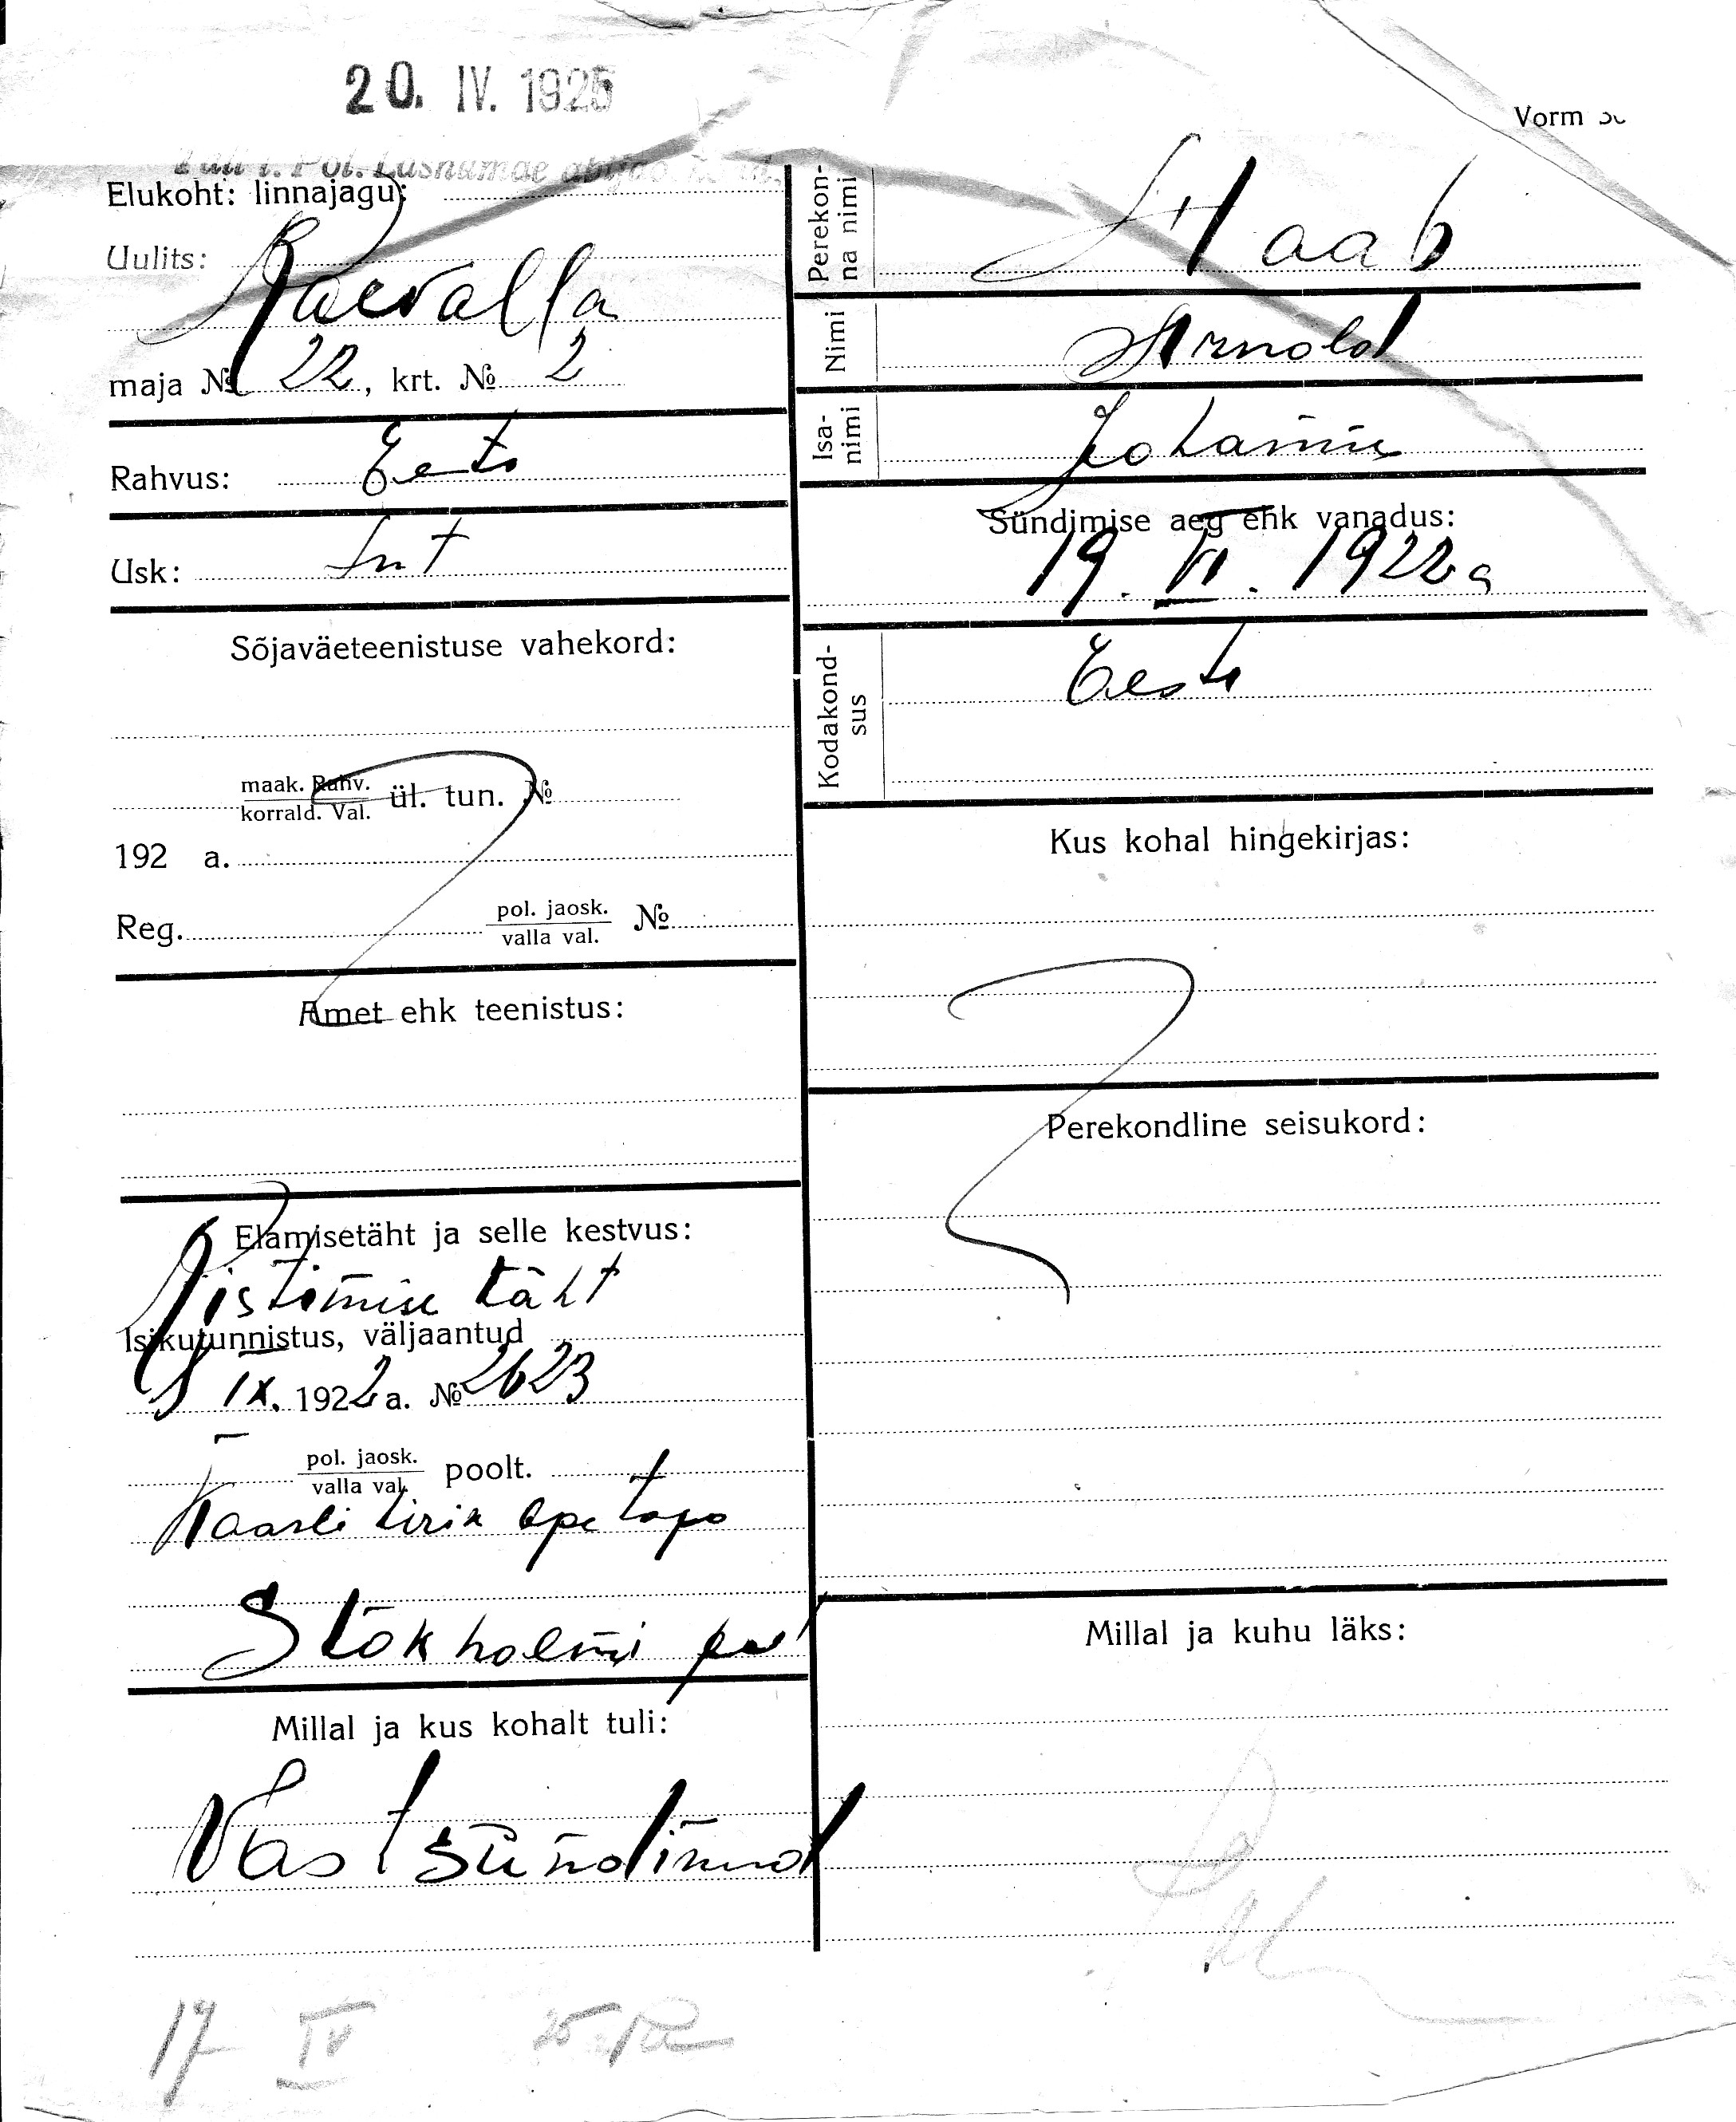 20. IV. 1925
Vorm
Elukoht: linnajagu:
Uulits: Raevalla
maja № 22, krt. № 2
Rahvus: Eesti
Usk: Lut
Sõjaväeteenistuse vahekord:
maak. Rahv.
korrald. Val. ül. tun. №
192 a.
Reg. pol. jaosk. №
valla val.
Amet ehk teenistus:
Elamisetäht ja selle kestvus:
Ristimise täht
Isikutunnistus, väljaantud
IX. 1922 a. № 2623
pol. jaosk. poolt.
valla val.
Kaarli kirik õpetaja
Stokholmi
Millal ja kus kohalt tuli:
Vastsündinud
17 IV 25
Perekon-
na nimi Staab
Nimi Arnold
Isa-
nimi
Sündimise aeg ehk vanadus:
19. VI. 1922 a
Kodakond-
sus Eesti
Kus kohal hingekirjas:
Perekondline seisukord:
Millal ja kuhu läks: